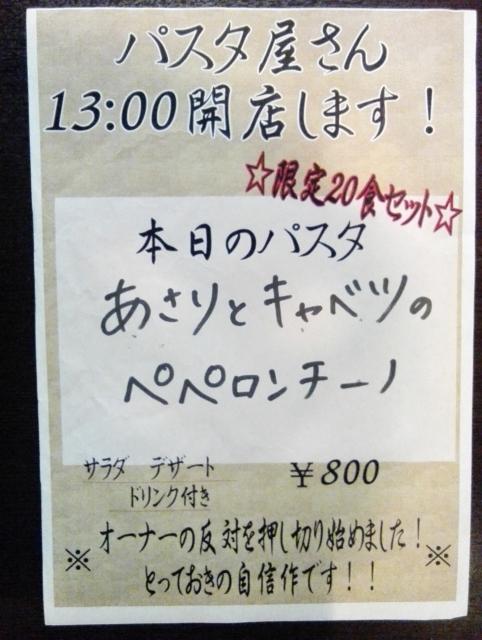 パスタ屋さん
13:00開店します！
☆限定20食セット☆
本日のパスタ
あさりとキャベツの
ペペロンチーノ
サラダ　デザート
ドリンク付き
￥800
オーナーの反対を押し切り始めました！
※　とっておきの自信作です！！　※